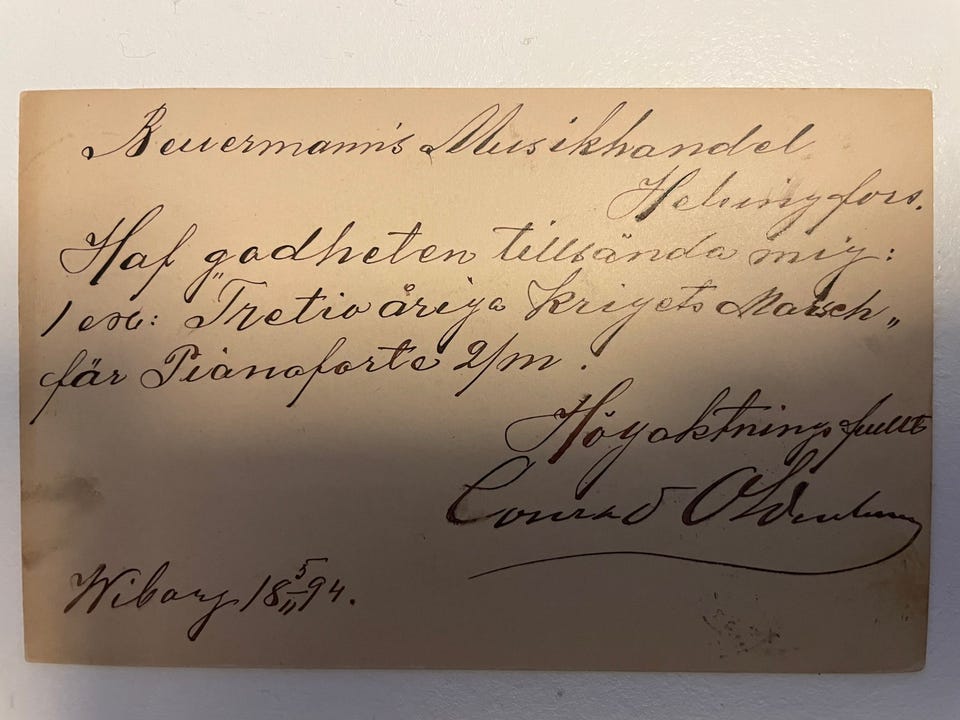 Beuermann's Musikhandel
Helsingfors.
Haf godheten tillsända mig:
1 ex: "Tretioåriga Krigets Marsch"
för Pianoforte 2/m.
Högaktningsfullt
Conrad
Wiborg 18 5/11 94.